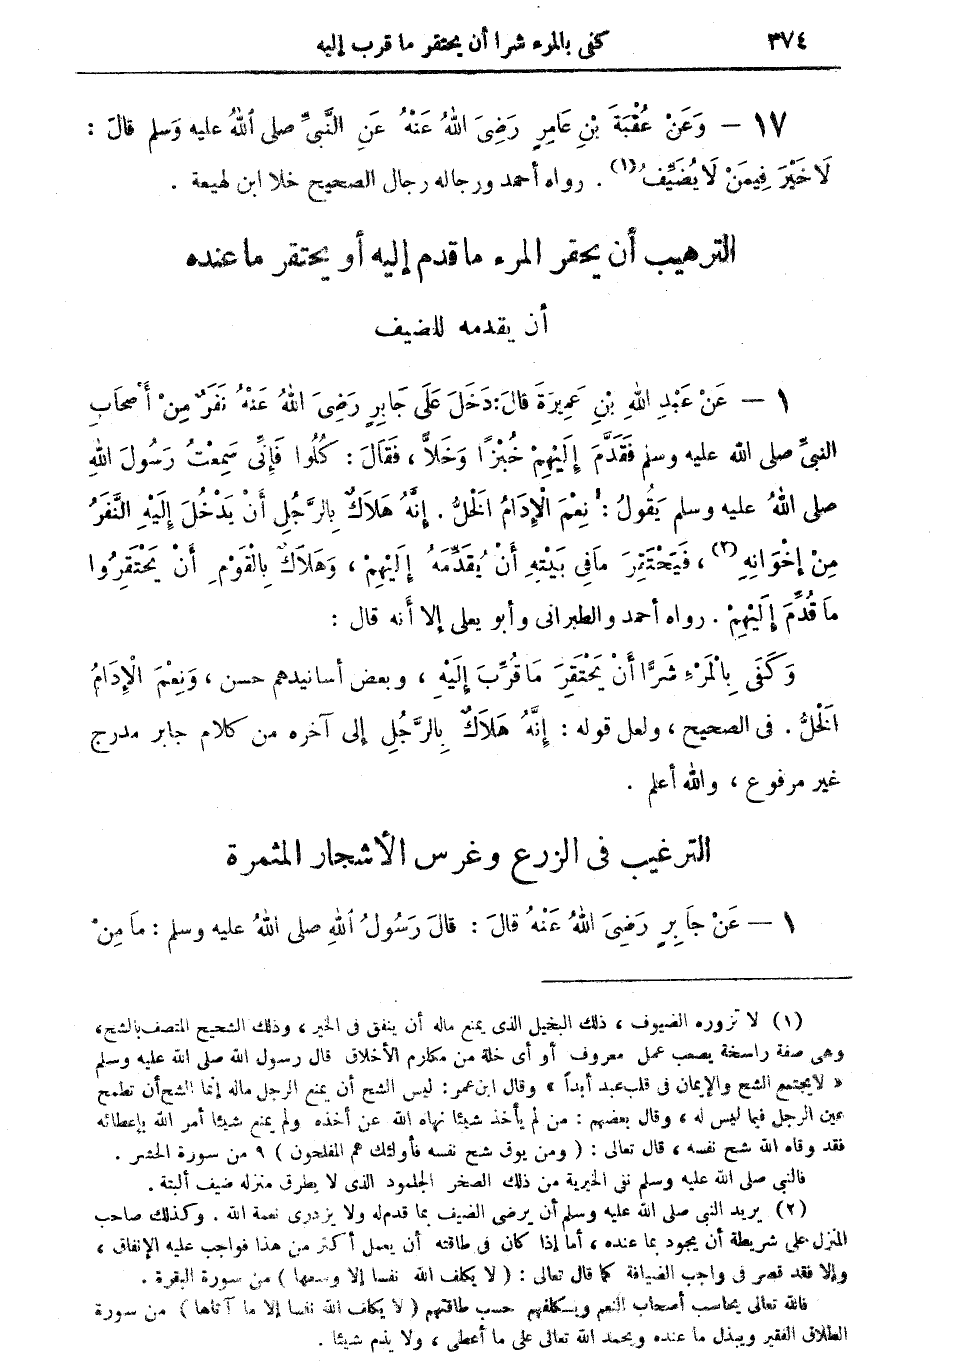 ٣٧٤ كفى بالمرء شرا أن يحتقر ما قرب إليه
١٧ — وَعَنْ عُقْبَةَ بْنِ عَامِرٍ رَضِيَ اللهُ عَنْهُ عَنِ النَّبِيِّ صلى اللهُ عليه وَسلم قالَ :
لَا خَيْرَ فِيمَنْ لَا يُضَيِّفُ (١) . رواه أحمد ورجاله رجال الصحيح خلا ابن لهيعة .
الترهيب أن يحقر المرء ما قدم إليه أو يحتقر ما عنده
أن يقدمه للضيف
١ — عَنْ عَبْدِ اللهِ بْنِ عَمِيرَةَ قالَ: دَخَلَ عَلَى جَابِرٍ رَضِيَ اللهُ عَنْهُ نَفَرٌ مِنْ أَصْحَابِ
النبيِّ صلى الله عليه وسلم فَقَدَّمَ إِلَيْهِمْ خُبْزًا وَخَلاًّ ، فَقَالَ : كُلُوا فَإِنِّى سَمِعْتُ رَسُولَ اللهِ
صلى اللهُ عليه وسلم يَقُولُ : نِعْمَ الْإِدَامُ الْخَلُّ . إِنَّهُ هَلَاكٌ بِالرَّجُلِ أَنْ يَدْخُلَ إِلَيْهِ النَّفَرُ
مِنْ إِخْوَانِهِ (٢) ، فَيَحْتَقِرَ مَا فِى بَيْتِهِ أَنْ يُقَدِّمَهُ إِلَيْهِمْ ، وَهَلَاكٌ بِالْقَوْمِ أَنْ يَحْتَقِرُوا
مَا قُدِّمَ إِلَيْهِمْ . رواه أحمد والطبرانى وأبو يعلى إلا أنه قال :
وَكَفَى بِالْمَرْءِ شَرًّا أَنْ يَحْتَقِرَ مَا قُرِّبَ إِلَيْهِ ، وبعض أسانيدهم حسن ، وَنِعْمَ الْإِدَامُ
الْخَلُّ . فى الصحيح ، ولعل قوله : إِنَّهُ هَلَاكٌ بِالرَّجُلِ إلى آخره من كلام جابر مدرج
غير مرفوع ، والله أعلم .
الترغيب فى الزرع وغرس الأشجار المثمرة
١ — عَنْ جَابِرٍ رَضِيَ اللهُ عَنْهُ قالَ : قالَ رَسُولُ اللهِ صلى اللهُ عليه وسلم : مَا مِنْ
(١) لا تزوره الضيوف ، ذلك البخيل الذى يمنع ماله أن ينفق فى الخير ، وذلك الشحيح المتصف بالشح ،
وهى صفة راسخة يصعب عمل معروف أو أى خلة من مكارم الأخلاق قال رسول الله صلى الله عليه وسلم
« لايجتمع الشح والإيمان فى قلب عبد أبداً » وقال ابن عمر : ليس الشح أن يمنع الرجل ماله إنما الشح أن تطمح
عين الرجل فيما ليس له ، وقال بعضهم : من لم يأخذ شيئا نهاه الله عن أخذه ولم يمنع شيئا أمر الله بإعطائه
فقد وقاه الله شح نفسه ، قال تعالى : ( ومن يوق شح نفسه فأولئك هم المفلحون ) ٩ من سورة الحشر .
فالنبى صلى الله عليه وسلم نفى الخيرية من ذلك الصخر الجلمود الذى لا يطرق منزله ضيف ألبتة .
(٢) يريد النبى صلى الله عليه وسلم أن يرضى الضيف بما قدم له ولا يزدرى نعمة الله . وكذلك صاحب
المنزل على شريطة أن يجود بما عنده ، أما إذا كان فى طاقته أن يعمل أكثر من هذا فواجب عليه الإنفاق ،
وإلا فقد قصر فى واجب الضيافة كما قال تعالى : ( لا يكلف الله نفسا إلا وسعها ) من سورة البقرة .
فالله تعالى يحاسب أصحاب النعم ويكلفهم حسب طاقتهم ( لا يكلف الله نفسا إلا ما آتاها ) من سورة
الطلاق الفقير ويبذل ما عنده ويحمد الله تعالى على ما أعطى ، ولا يذم شيئا .